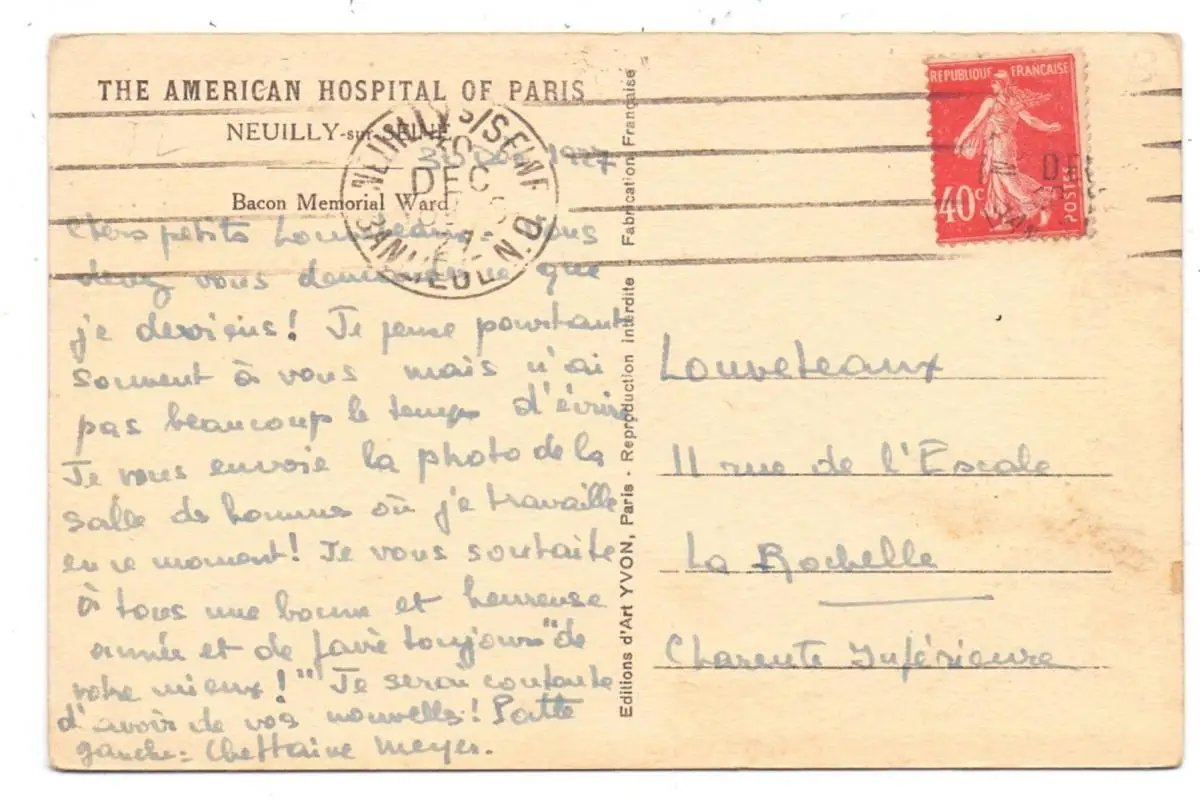 THE AMERICAN HOSPITAL OF PARIS
NEUILLY-sur-SEINE
30 Déc 1927
Bacon Memorial Ward
Chers petits Louveteaux. Vous
devez vous demander ce que
je deviens! Je pense pourtant
souvent à vous mais n'ai
pas beaucoup le temps d'écrire
Je vous envoie la photo de la
salle de hommes où je travaille
en ce moment! Je vous souhaite
à tous une bonne et heureuse
année et de faire toujours "de
votre mieux!" Je serai contente
d'avoir de vos nouvelles! Patte
gauche = Cheftaine Meyer.
NEUILLY S/SEINE
30
DEC
BANLIEUE N.O.
Editions d'Art YVON, Paris - Reproduction interdite - Fabrication Française
REPUBLIQUE FRANÇAISE
40c
POSTES
Louveteaux
11 rue de l'Escale
La Rochelle
Charente Inférieure